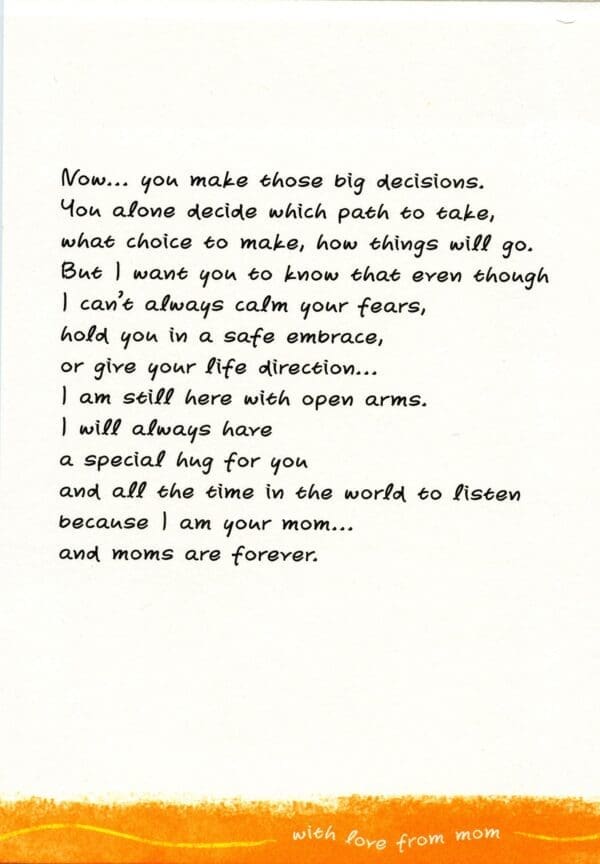 Now... you make those big decisions.
You alone decide which path to take,
what choice to make, how things will go.
But I want you to know that even though
I can't always calm your fears,
hold you in a safe embrace,
or give your life direction...
I am still here with open arms.
I will always have
a special hug for you
and all the time in the world to listen
because I am your mom...
and moms are forever.
with love from mom